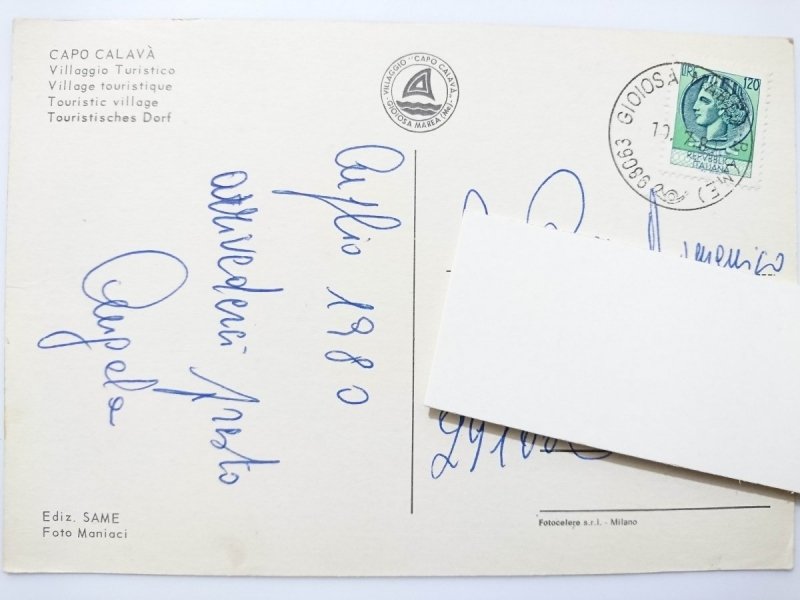 CAPO CALAVÀ
Villaggio Turistico
Village touristique
Touristic village
Touristisches Dorf
VILLAGGIO "CAPO CALAVÀ"
GIOIOSA MAREA (Me)
98063 GIOIOSA (ME)
LIRE 120
REPVBBLICA
ITALIANA
luglio 1980
arrivederci presto
Angela
Ediz. SAME
Foto Maniaci
Fotocelere s.r.l. - Milano